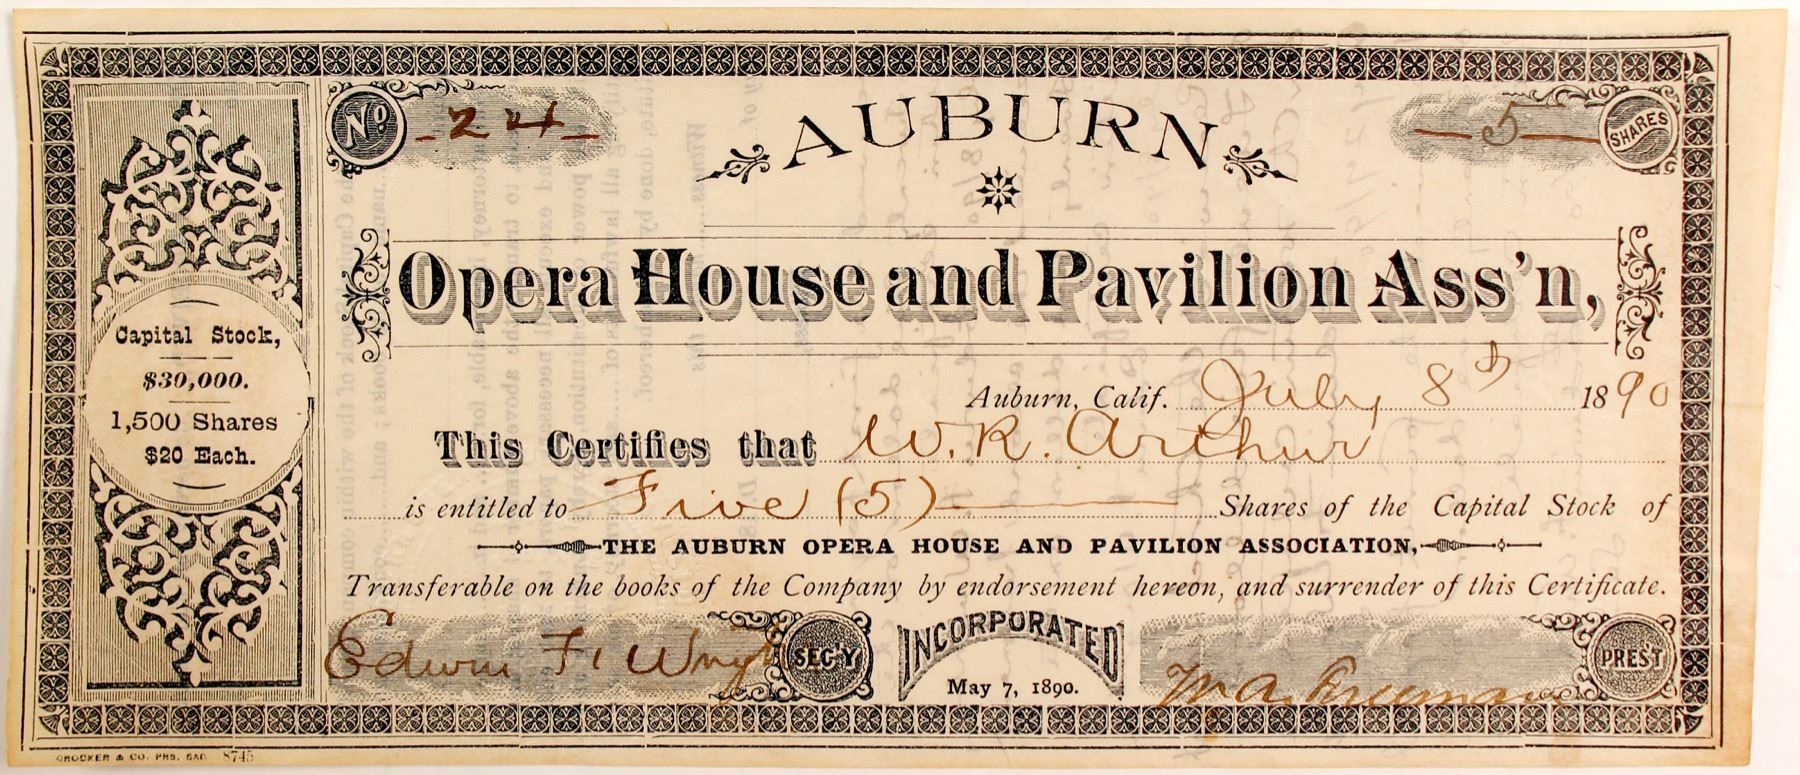 No. 24
AUBURN
5 SHARES
Opera House and Pavilion Ass'n,
Capital Stock,
$30,000.
1,500 Shares
$20 Each.
Auburn, Calif. July 8th 1890
This Certifies that W. R. Arthur
is entitled to Five (5) Shares of the Capital Stock of
THE AUBURN OPERA HOUSE AND PAVILION ASSOCIATION,
Transferable on the books of the Company by endorsement hereon, and surrender of this Certificate.
Edwin F. Wright SEC'Y
INCORPORATED
May 7, 1890.
Freeman PREST
CROCKER & CO. PRS. SAC. 8745